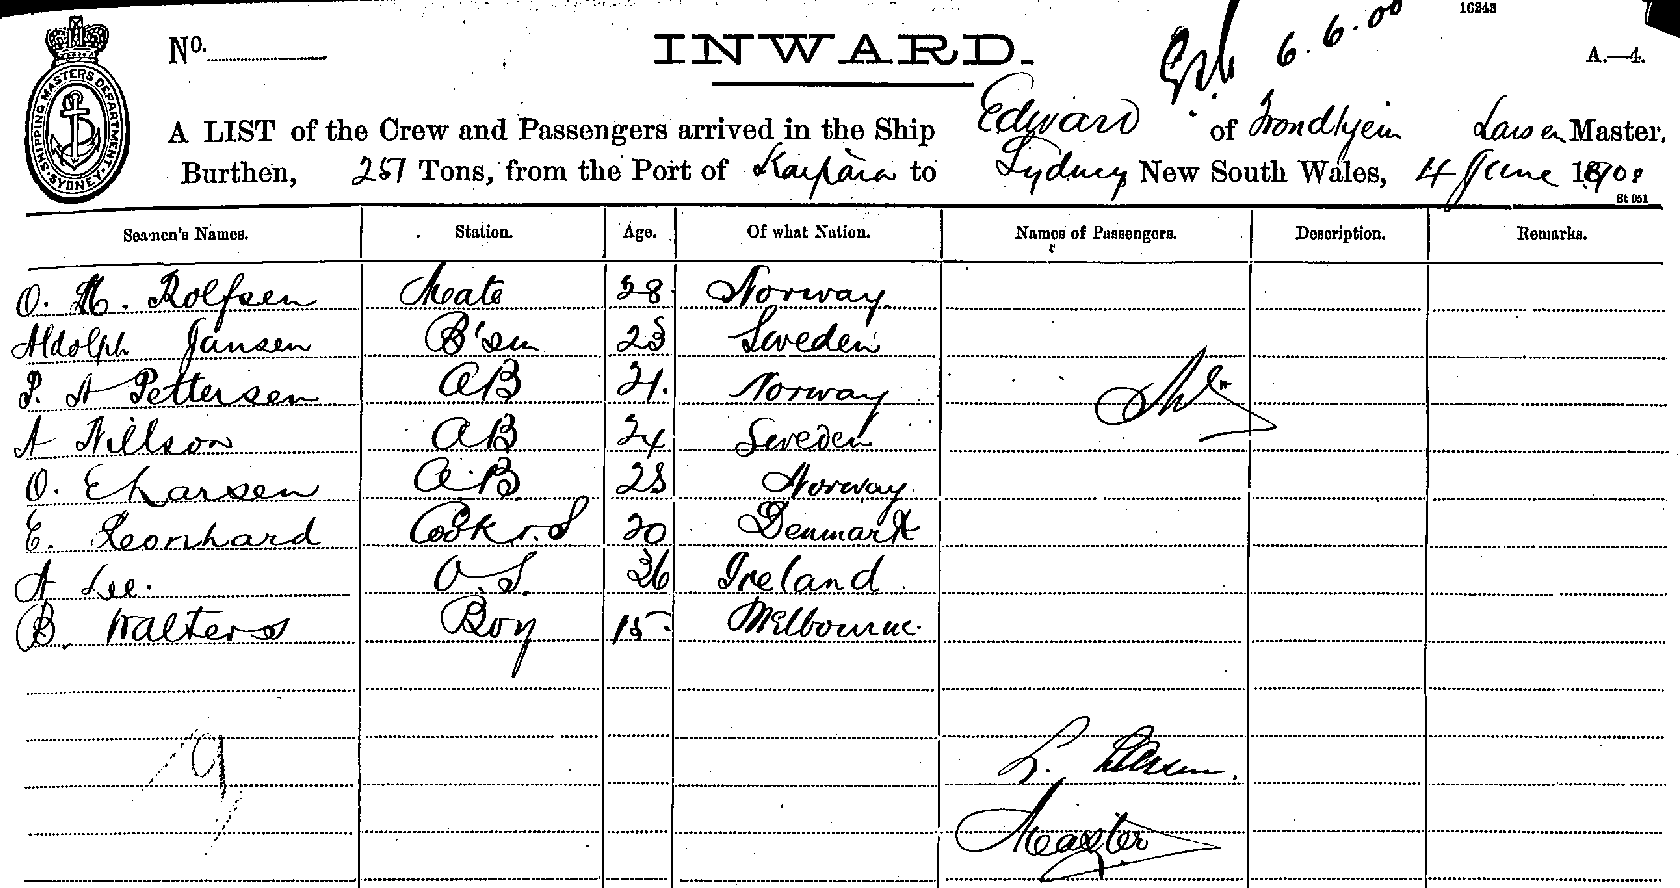 16243
No.
INWARD.
6.6.00
A.—4.
SHIPPING MASTERS DEPARTMENT. SYDNEY.
A LIST of the Crew and Passengers arrived in the Ship Edward of Trondhjem Larsen Master,
Burthen, 257 Tons, from the Port of Kaipara to Sydney New South Wales, 4 June
St 051
Seamen's Names. Station. Age. Of what Nation. Names of Passengers. Description. Remarks.
O. M. Rolfsen Mate 28 Norway
Aldolph Jansen B'sn 23 Sweden
P. A Pettersen AB 21. Norway
A Nillson AB 24 Sweden
O. E Larsen A.B. 23 Norway
E. Leonhard Cook 20 Denmark
A Lee. O.S. 36 Ireland
B. Walters Boy 15 Melbourne.
9
L. Larsen.
Master